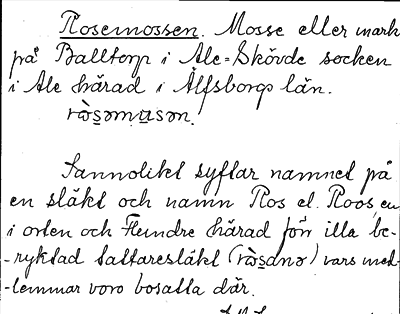 Rosemossen. Mosse eller mark
på Balltorp i Ale-Skövde socken
i Ale härad i Älfsborgs län.
ròs̲əmu̲sən.
Sannolikt syftar namnet på
en släkt och namn Ros el. Roos, en
i orten och Flundre härad för illa be-
-ryktad tattaresläkt (ròs̲anə) vars med-
-lemmar voro bosatta där.